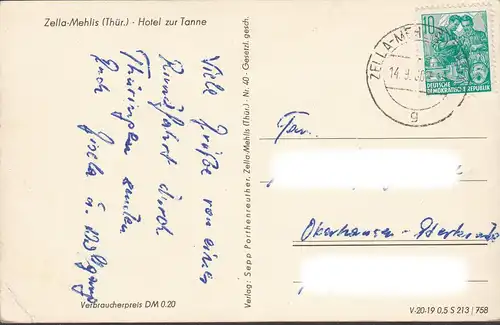 Zella-Mehlis (Thür.) - Hotel zur Tanne
Viele Grüße von einer
Rundfahrt durch
Thüringen senden
Euch Gisela u. Wolfgang
Verbraucherpreis DM 0.20
Verlag: Sepp Porthenreuther, Zella-Mehlis (Thür.) - Nr. 40 - Gesetzl. gesch.
ZELLA-MEHLIS
14.9.
g
10
DEUTSCHE
DEMOKRATISCHE REPUBLIK
Fam.
Oberhausen - Sterkrade
V-20-19 0,5 S 213 | 758